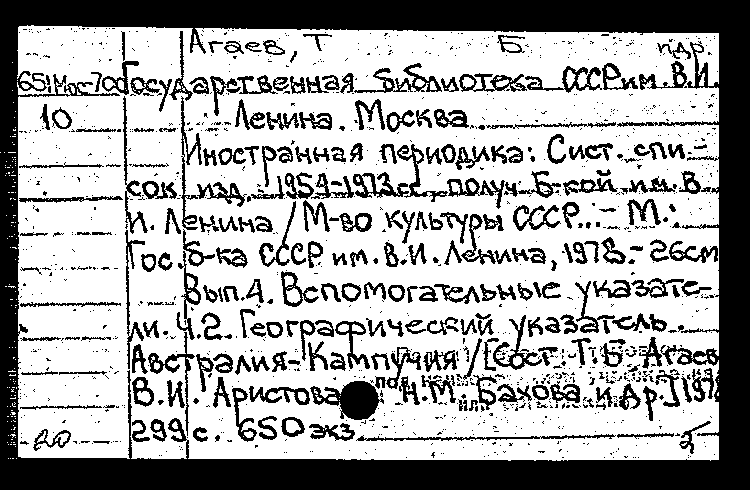 Агаев, Т Б пдр.
651Мос700 Государственная библиотека СССР им. В.И.
10 Ленина. Москва.
Иностранная периодика: Сист. спи-
сок изд. 1954-1973гг., получ. Б-кой им. В.
И. Ленина / М-во культуры СССР.. - М.:
Гос. б-ка СССР им. В.И. Ленина, 1978. - 26см
Вып.4. Вспомогательные указате-
ли. Ч.2. Географический указатель.
Австралия-Кампучия / [Сост. Т. Б. Агаев
В.И. Аристова Н.М. Бахова и др.] 1978
299 с. 650 экз.
20 2